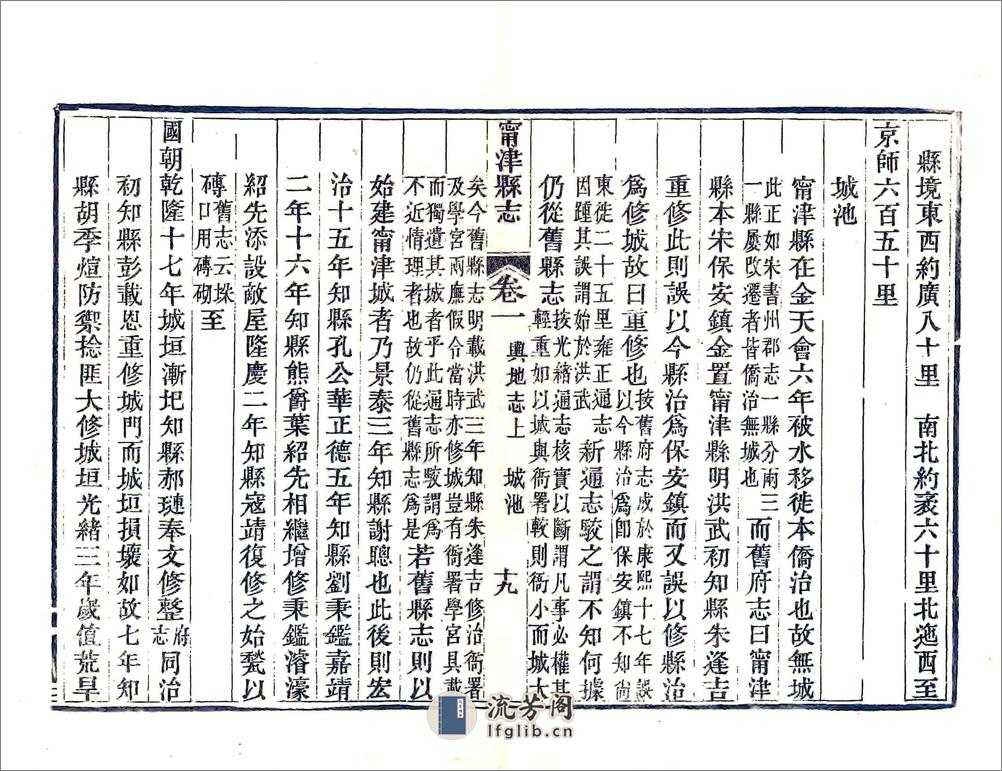 縣境東西約廣八十里　南北約袤六十里北迤西至
京師六百五十里
城池
甯津縣在金天會六年被水移徙本僑治也故無城
此正如朱書州郡志一縣分兩三
一縣屢改遷者皆僑治無城也
而舊府志曰甯津
縣本宋保安鎮金置甯津縣明洪武初知縣朱逢吉
重修此則誤以今縣治爲保安鎮而又誤以修縣治
爲修城故曰重修也
按舊府志成於康熙十七年誤
以今縣治爲卽保安鎮不知尙
東徙二十五里雍正通志
因踵其誤謂始於洪武
新通志駮之謂不知何據
仍從舊縣志
按光緒通志核實以斷謂凡事必權其
輕重如以城與衙署較則衙小而城大
甯津縣志
卷一
輿地志上
城池
十九
矣今舊縣志明載洪武三年知縣朱逢吉修治衙署
及學宮兩廡假令當時亦修城豈有衙署學宮具載
而獨遺其城者乎此通志所駮謂爲
不近情理者也故仍從舊縣志爲是
若舊縣志則以
始建甯津城者乃景泰三年知縣謝聰也此後則宏
治十五年知縣孔公華正德五年知縣劉秉鑑嘉靖
二年十六年知縣熊爵葉紹先相繼增修秉鑑濬濠
紹先添設敵屋隆慶二年知縣寇靖復修之始甃以
磚
舊志云垜
口用磚砌
至
國朝乾隆十七年城垣漸圯知縣郝璉奉文修整
府
志
同治
初知縣彭載恩重修城門而城垣損壞如故七年知
縣胡季煊防禦捻匪大修城垣光緒三年歲值荒旱
流芳阁
lfglib.cn